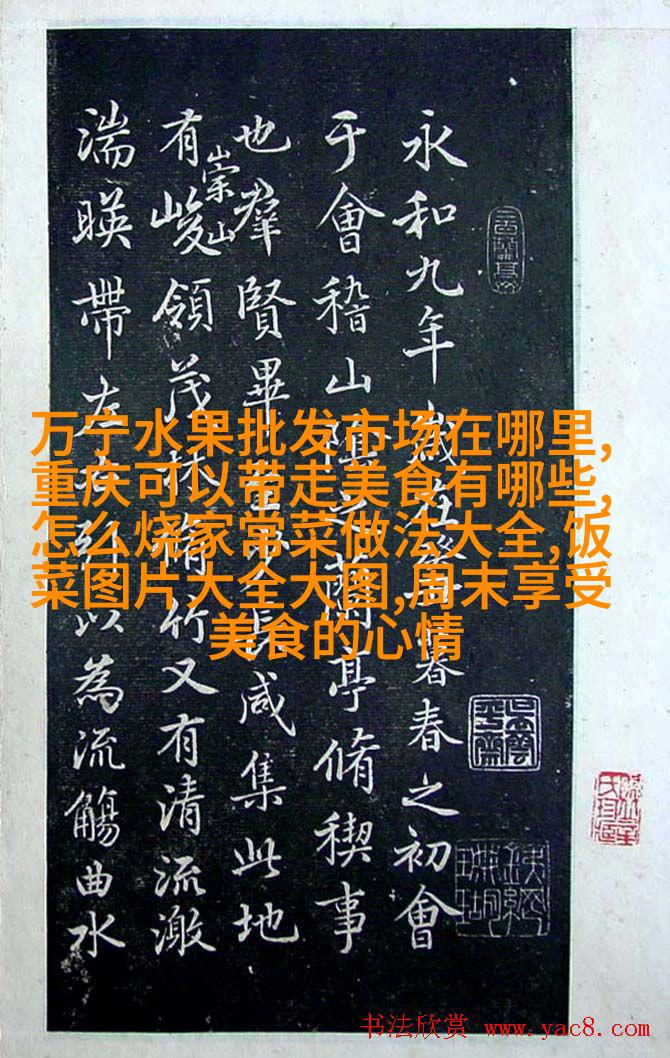 永和九年歲在癸丑暮春之初會
于會稽山陰之蘭亭脩稧事
也羣賢畢至少長咸集此地
有崇山峻領茂林脩竹又有清流激
湍暎帶左右引以為流觴曲水
万宁水果批发市场在哪里,
重庆可以带走美食有哪些,
怎么烧家常菜做法大全,饭
菜图片大全大图,周末享受
美食的心情
书法欣赏 www.yac8.com